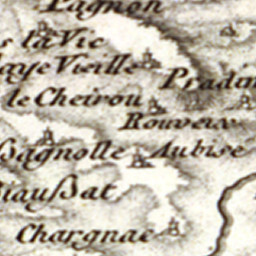 Pagnon
s la Vic
laye Vieille
Pradin
le Cheirou
Rouveix
Bagnolle
Aubise
Biaußat
Chargnac